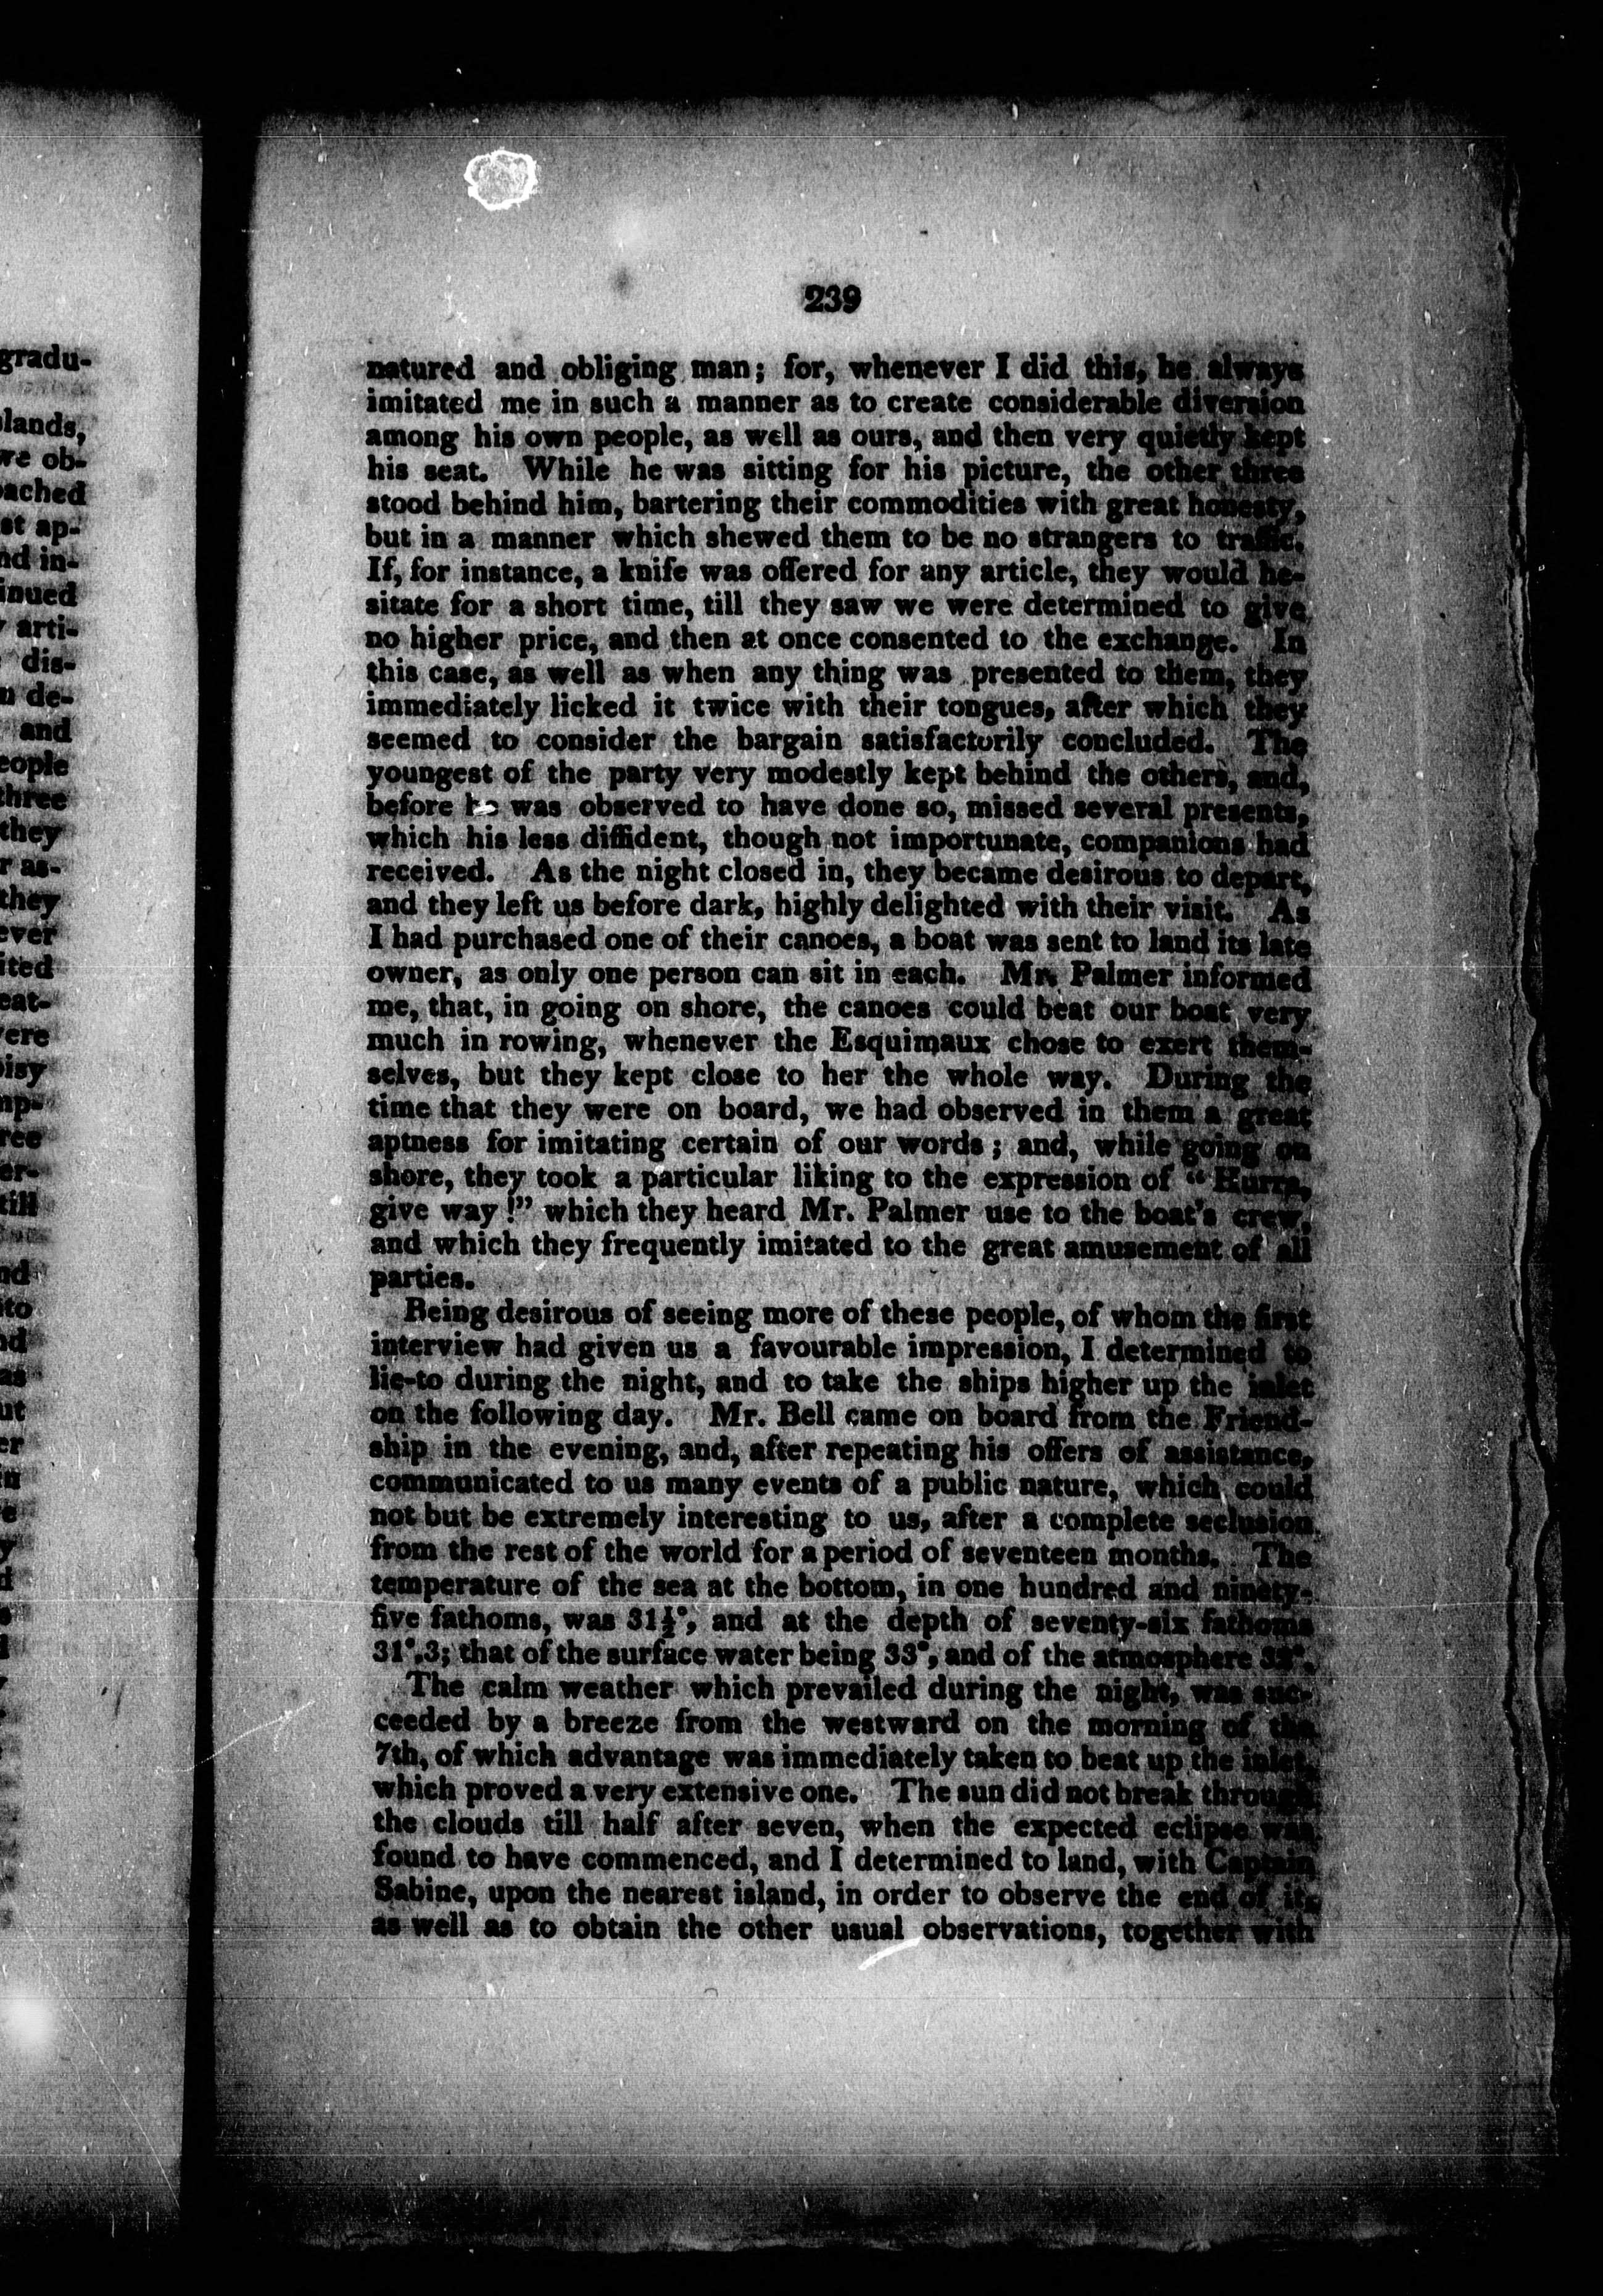 gradu-
lands,
we ob-
ached
st ap-
nd in-
inued
arti-
dis-
u de-
and
eople
three
they
r as-
they
ever
ited
eat-
ere
isy
mp-
ree
er-
till
nd
ito
nd
as
ut
er
in
e
y
d
239
natured and obliging man; for, whenever I did this, he always
imitated me in such a manner as to create considerable diversion
among his own people, as well as ours, and then very quietly kept
his seat. While he was sitting for his picture, the other three
stood behind him, bartering their commodities with great honesty,
but in a manner which shewed them to be no strangers to traffic.
If, for instance, a knife was offered for any article, they would he-
sitate for a short time, till they saw we were determined to give
no higher price, and then at once consented to the exchange. In
this case, as well as when any thing was presented to them, they
immediately licked it twice with their tongues, after which they
seemed to consider the bargain satisfactorily concluded. The
youngest of the party very modestly kept behind the others, and,
before he was observed to have done so, missed several presents,
which his less diffident, though not importunate, companions had
received. As the night closed in, they became desirous to depart,
and they left us before dark, highly delighted with their visit. As
I had purchased one of their canoes, a boat was sent to land its late
owner, as only one person can sit in each. Mr. Palmer informed
me, that, in going on shore, the canoes could beat our boat very
much in rowing, whenever the Esquimaux chose to exert them-
selves, but they kept close to her the whole way. During the
time that they were on board, we had observed in them a great
aptness for imitating certain of our words; and, while going on
shore, they took a particular liking to the expression of "Hurra,
give way!" which they heard Mr. Palmer use to the boat's crew,
and which they frequently imitated to the great amusement of all
parties.
Being desirous of seeing more of these people, of whom the first
interview had given us a favourable impression, I determined to
lie-to during the night, and to take the ships higher up the inlet
on the following day. Mr. Bell came on board from the Friend-
ship in the evening, and, after repeating his offers of assistance,
communicated to us many events of a public nature, which could
not but be extremely interesting to us, after a complete seclusion
from the rest of the world for a period of seventeen months. The
temperature of the sea at the bottom, in one hundred and ninety-
five fathoms, was 31½°, and at the depth of seventy-six fathoms
31°.3; that of the surface water being 33°, and of the atmosphere
The calm weather which prevailed during the night, was suc-
ceeded by a breeze from the westward on the morning of the
7th, of which advantage was immediately taken to beat up the inlet,
which proved a very extensive one. The sun did not break through
the clouds till half after seven, when the expected eclipse was
found to have commenced, and I determined to land, with Captain
Sabine, upon the nearest island, in order to observe the end of it,
as well as to obtain the other usual observations, together with